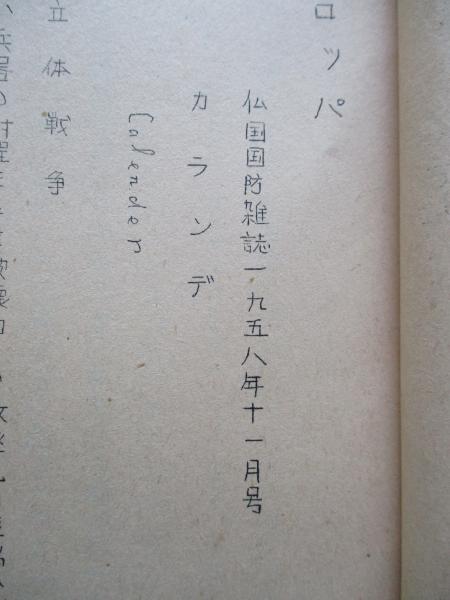 ロッパ
仏国国防雑誌一九五八年十一月号
カランデ
Calender
立体戦争